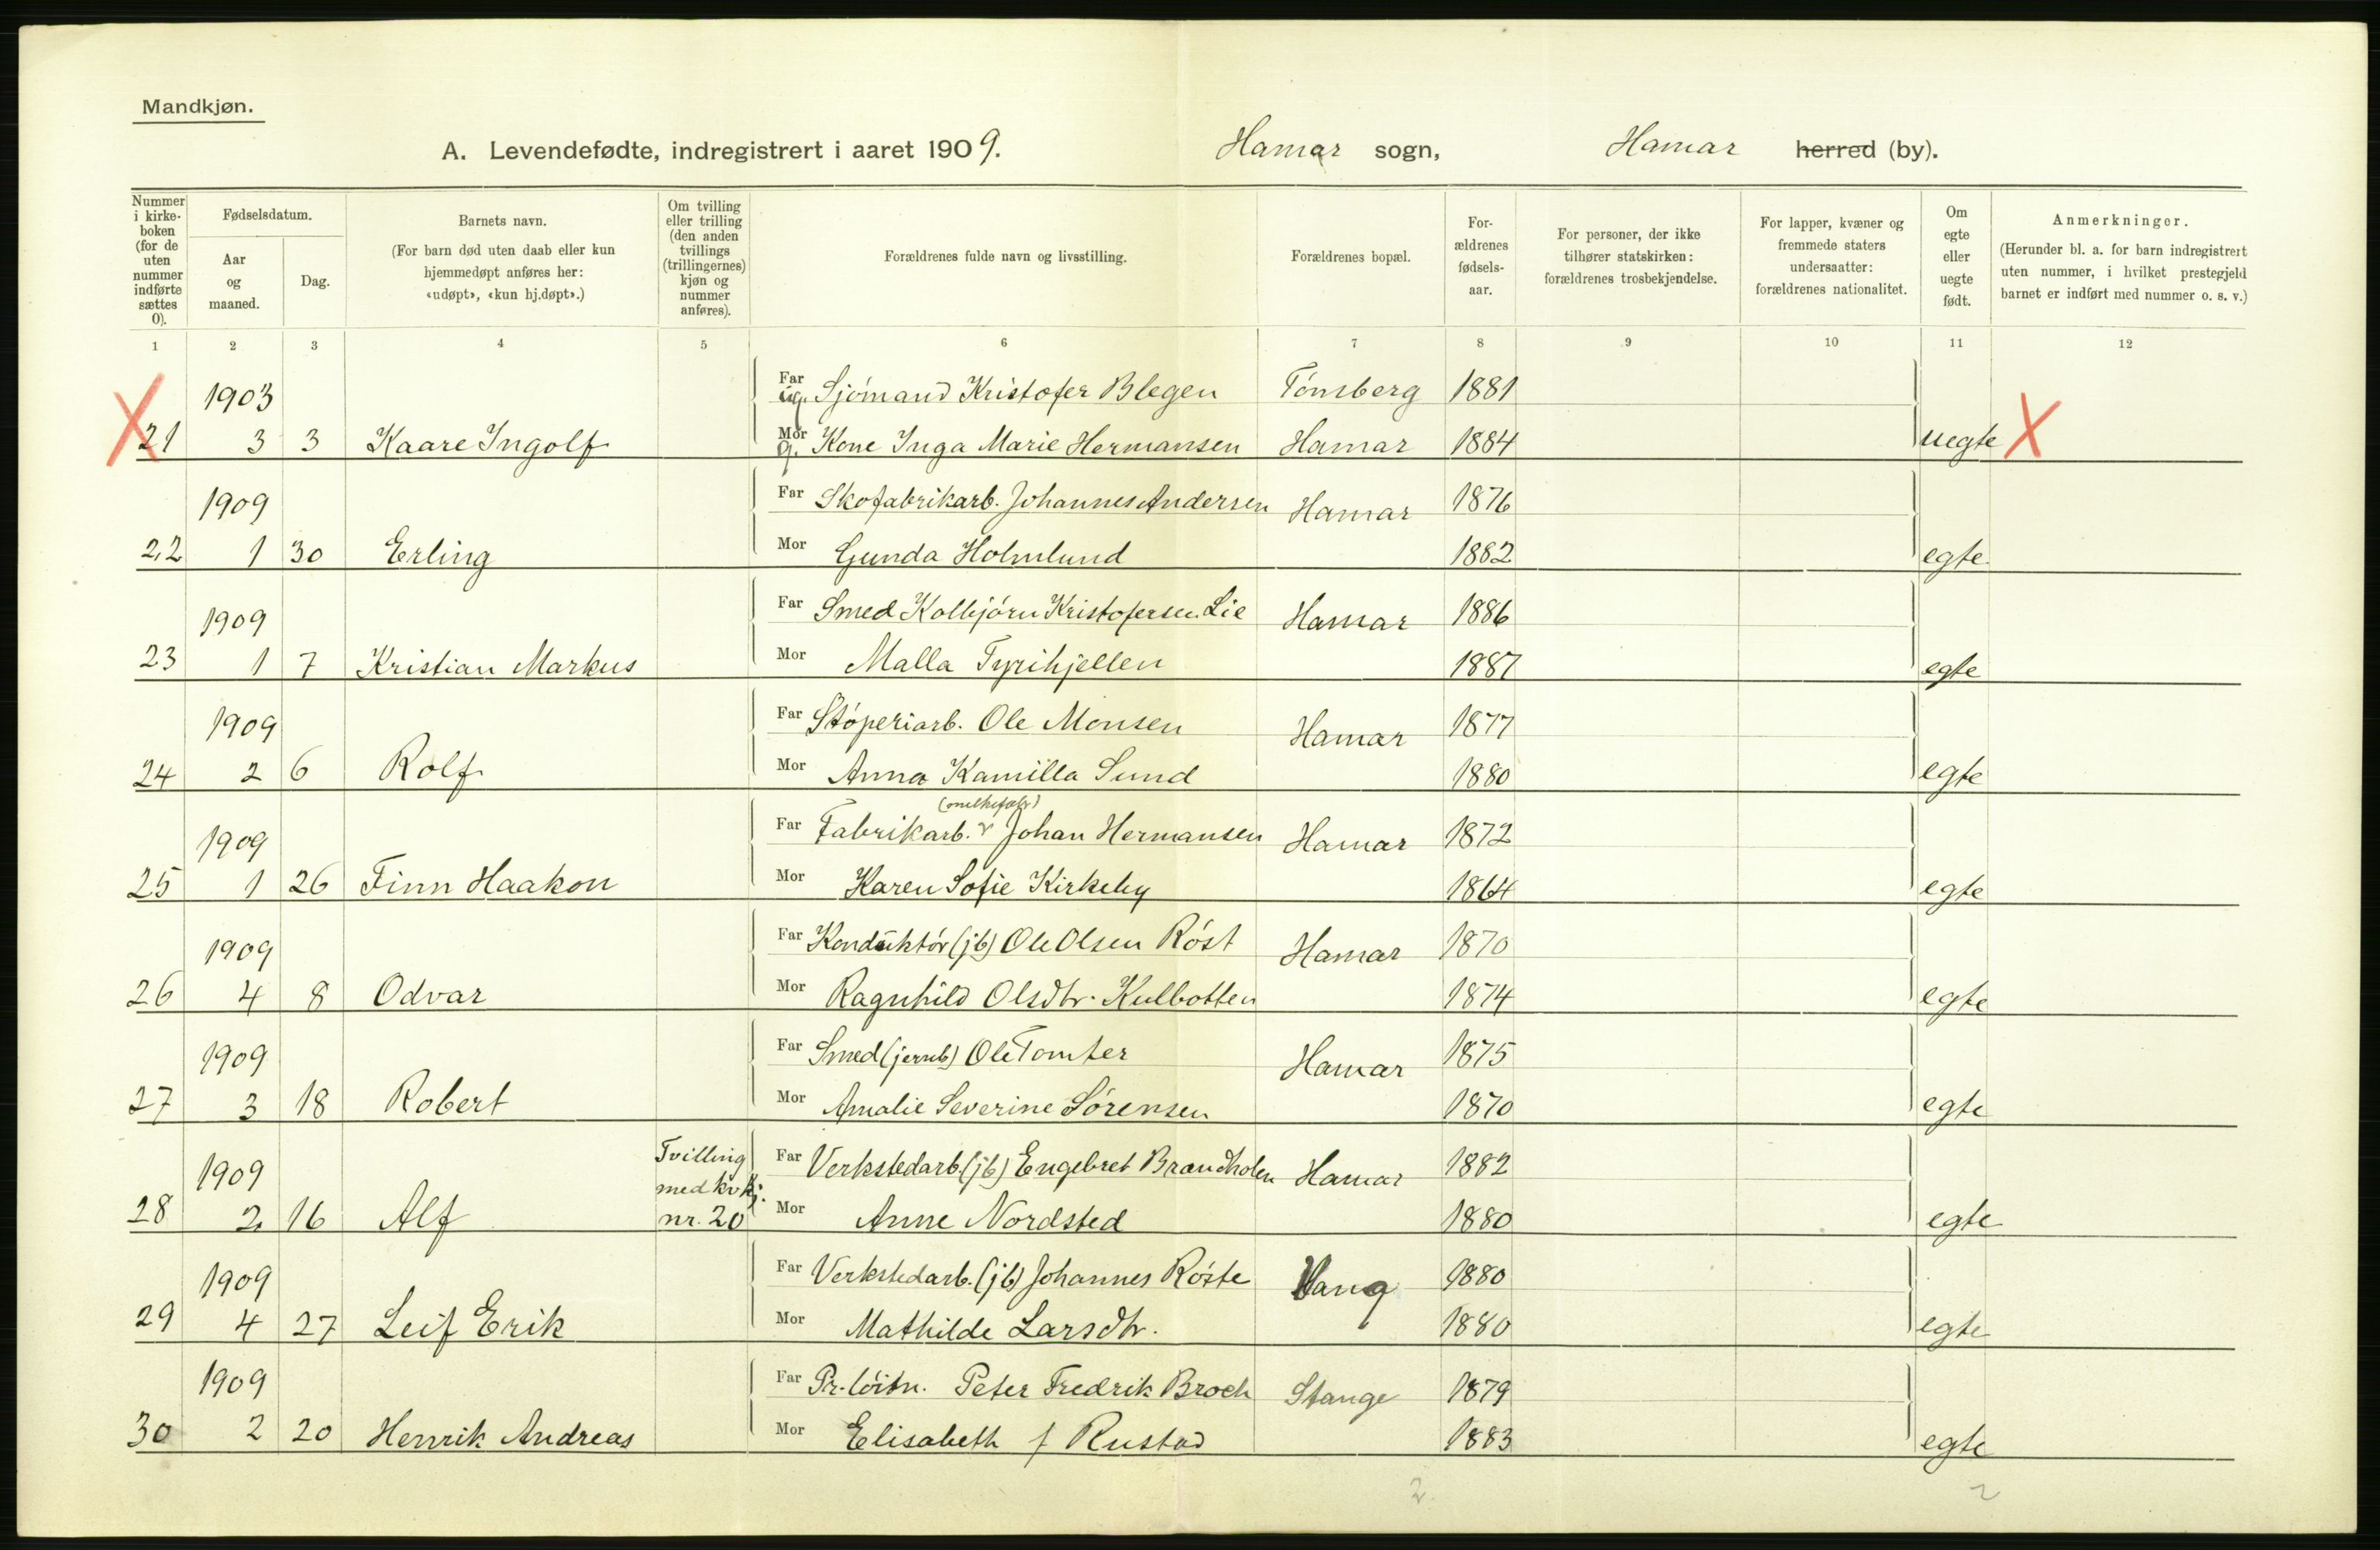 Mandkjøn.
A. Levendefødte, indregistrert i aaret 1909. Hamar sogn, Hamar herred (by).
Nummer i kirkeboken (for de uten nummer indførte sættes 0).
Fødselsdatum.
Aar og maaned.
Dag.
Barnets navn.
(For barn død uten daab eller kun hjemmedøpt anføres her: «udøpt», «kun hj.døpt».)
Om tvilling eller trilling (den anden tvillings (trillingernes) kjøn og nummer anføres).
Forældrenes fulde navn og livsstilling.
Forældrenes bopæl.
Forældrenes fødselsaar.
For personer, der ikke tilhører statskirken: forældrenes trosbekjendelse.
For lapper, kvæner og fremmede staters undersaatter: forældrenes nationalitet.
Om egte eller uegte født.
Anmerkninger.
(Herunder bl. a. for barn indregistrert uten nummer, i hvilket prestegjeld barnet er indført med nummer o. s. v.)
1 2 3 4 5 6 7 8 9 10 11 12
1903 Far ug. Sjómand Kristofer Blegen Tónsberg 1881
21 3 3 Kaare Ingolf Mor g. Kone Inga Marie Hermansen Hamar 1884 uegte X
1909 Far Skofabrikarb. Johannes Andersen Hamar 1876
22 1 30 Erling Mor Gunda Holmlund 1882 egte
1909 Far Smed Kolbjórn Kristofersen Lie Hamar 1886
23 1 7 Kristian Markus Mor Malla Tyrihjellen 1887 egte
1909 Far Stóperiarb. Ole Monsen Hamar 1877
24 2 6 Rolf Mor Anna Kamilla Sund 1880 egte
(melkefabr)
1909 Far Fabrikarb. Johan Hermansen Hamar 1872
25 1 26 Finn Haakon Mor Karen Sofie Kirkeby 1864 egte
1909 Far Konduktór (jb) Ole Olsen Róst Hamar 1870
26 4 8 Odvar Mor Ragnhild Olsdtr. Kulbotten 1874 egte
1909 Far Smed (jernb) Ole Tomter Hamar 1875
27 3 18 Robert Mor Amalie Severine Sórensen 1870 egte
1909 Tvilling med kvkj. Far Verkstedarb. (jb) Engebret Brændholen Hamar 1882
28 2 16 Alf nr. 20 Mor Anne Nordsted 1880 egte
1909 Far Verkstedarb. (jb) Johannes Róste Vang 1880
29 4 27 Leif Erik Mor Mathilde Larsdtr. 1880 egte
1909 Far Pr.lóitn. Peter Fredrik Broch Stange 1879
30 2 20 Henrik Andreas Mor Elisabeth f Rustad 1883 egte
2 2